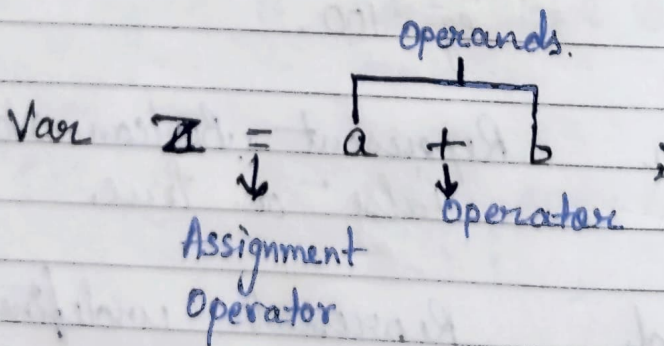 Operands.
Var Z = a + b ;
Operator
Assignment
Operator